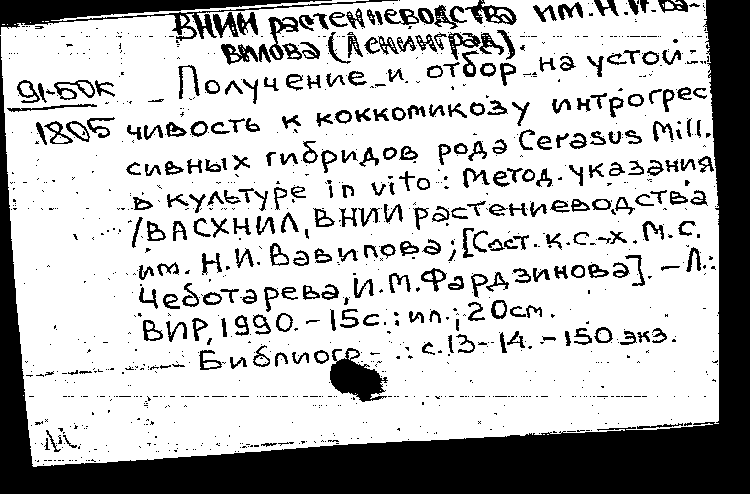 ВНИИ растениеводства им. Н.И. Ва-
вилова (Ленинград).
91-50К
Получение и отбор на устой-
1805 чивость к коккомикозу интрогрес
сивных гибридов рода Cerasus Mill.
в культуре in vito: Метод. указания
/ВАСХНИЛ, ВНИИ растениеводства
им. Н.И. Вавилова; [Сост. к.с.-х. М.С.
Чеботарева, И.М. Фардзинова]. - Л.:
ВИР, 1990. - 15с.: ил.; 20см.
Библиогр.: с. 13-14. - 150 экз.